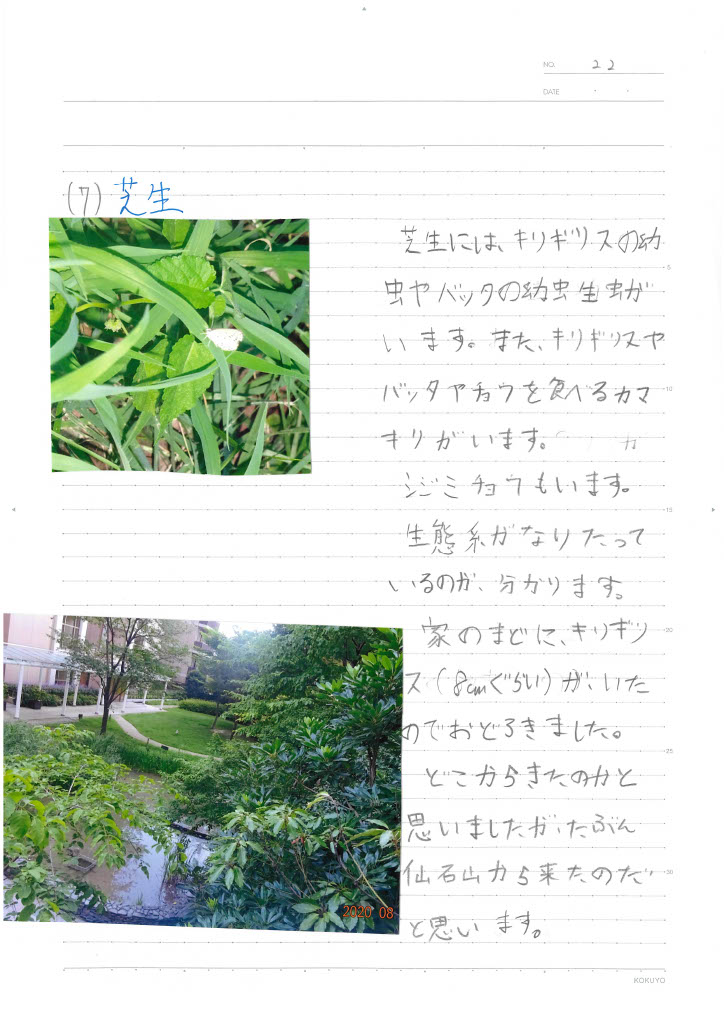 NO. 22
DATE ・ ・
(7) 芝生
芝生には、キリギリスの幼
虫やバッタの幼虫生虫が
います。また、キリギリスや
バッタやチョウを食べるカマ
キリがいます。
シジミチョウもいます。
生態系がなりたって
いるのが、分かります。
家のまどに、キリギリ
ス(8cmぐらい)が、いた
のでおどろきました。
どこからきたのかと
思いましたが、たぶん
仙石山から来たのだ
と思います。
5
10
15
20
25
30
2020 08
KOKUYO